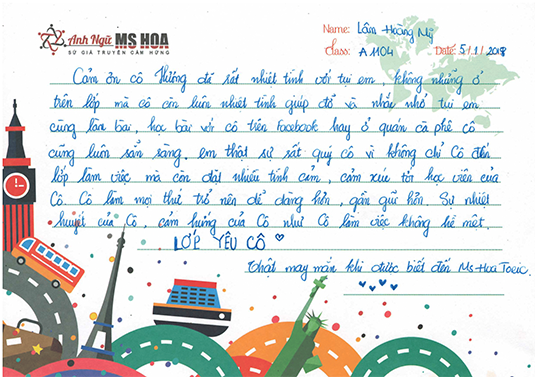 Anh Ngữ MS HOA
SỨ GIẢ TRUYỀN CẢM HỨNG
Name: Lâm Hoàng Mỹ
Class: A1104 Date: 5/1/2018
Cảm ơn cô Hường đã rất nhiệt tình với tụi em, không những ở
trên lớp mà cô còn luôn nhiệt tình giúp đỡ và nhắc nhở tụi em
cùng làm bài, học bài với cô trên Facebook hay ở quán cà phê cô
cũng luôn sẵn sàng. em thật sự rất quý cô vì không chỉ Cô đến
lớp làm việc mà còn đặt nhiều tình cảm, cảm xúc tới học viên của
Cô. Cô làm mọi thứ trở nên dễ dàng hơn, gần gũi hơn. Sự nhiệt
huyết của Cô, cảm hứng của Cô như Cô làm việc không hề mệt.
LỚP YÊU CÔ
Thật may mắn khi được biết đến Ms Hoa Toeic.